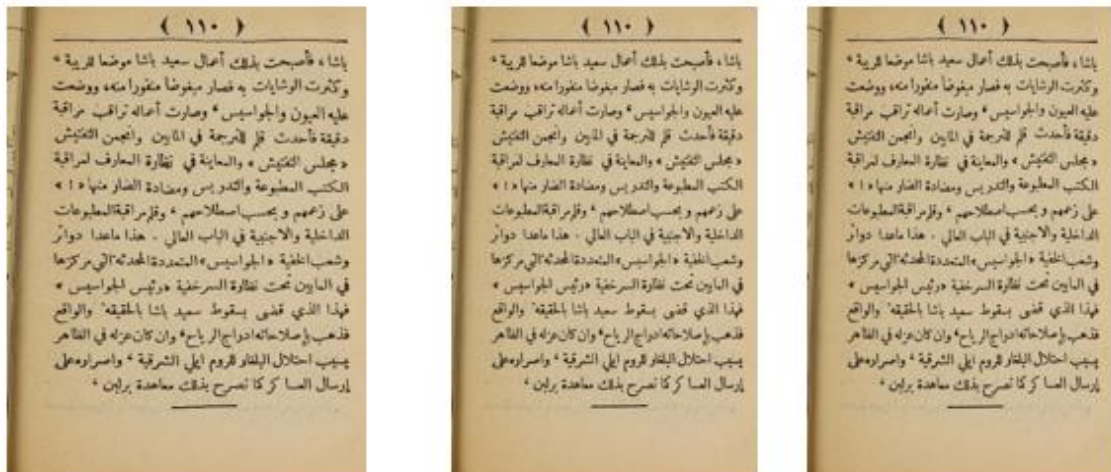 ﴿ ١١٠ ﴾
باشا، فأصبحت بذلك أعمال سعيد باشا موضعا للريبة،
وكثرت الوشايات به فصار مبغوضاً منفورا منه، ووضعت
عليه العيون والجواسيس، وصارت أعماله تراقب مراقبة
دقيقة فأحدث قلم للترجمة في المابين وانجمن التفتيش
«مجلس التفتيش» والمعاينة في نظارة المعارف لمراقبة
الكتب المطبوعة والتدريس ومضادة الضار منها «!»
على زعمهم وبحسب اصطلاحهم، وقلم مراقبة المطبوعات
الداخلية والاجنبية في الباب العالي. هذا ماعدا دوائر
وشعب الخفية «الجواسيس» المتعددة المحدثة التي مركزها
في المابين تحت نظارة السرخفية «رئيس الجواسيس»
فهذا الذي قضى بسقوط سعيد باشا بالحقيقة والواقع
فذهب بإصلاحاته ادراج الرياح، وان كان عزله في الظاهر
بسبب احتلال البلغار للروم ايلي الشرقية، واصراره على
إرسال العساكر كما تصرح بذلك معاهدة برلين،
﴿ ١١٠ ﴾
باشا، فأصبحت بذلك أعمال سعيد باشا موضعا للريبة،
وكثرت الوشايات به فصار مبغوضاً منفورا منه، ووضعت
عليه العيون والجواسيس، وصارت أعماله تراقب مراقبة
دقيقة فأحدث قلم للترجمة في المابين وانجمن التفتيش
«مجلس التفتيش» والمعاينة في نظارة المعارف لمراقبة
الكتب المطبوعة والتدريس ومضادة الضار منها «!»
على زعمهم وبحسب اصطلاحهم، وقلم مراقبة المطبوعات
الداخلية والاجنبية في الباب العالي. هذا ماعدا دوائر
وشعب الخفية «الجواسيس» المتعددة المحدثة التي مركزها
في المابين تحت نظارة السرخفية «رئيس الجواسيس»
فهذا الذي قضى بسقوط سعيد باشا بالحقيقة والواقع
فذهب بإصلاحاته ادراج الرياح، وان كان عزله في الظاهر
بسبب احتلال البلغار للروم ايلي الشرقية، واصراره على
إرسال العساكر كما تصرح بذلك معاهدة برلين،
﴿ ١١٠ ﴾
باشا، فأصبحت بذلك أعمال سعيد باشا موضعا للريبة،
وكثرت الوشايات به فصار مبغوضاً منفورا منه، ووضعت
عليه العيون والجواسيس، وصارت أعماله تراقب مراقبة
دقيقة فأحدث قلم للترجمة في المابين وانجمن التفتيش
«مجلس التفتيش» والمعاينة في نظارة المعارف لمراقبة
الكتب المطبوعة والتدريس ومضادة الضار منها «!»
على زعمهم وبحسب اصطلاحهم، وقلم مراقبة المطبوعات
الداخلية والاجنبية في الباب العالي. هذا ماعدا دوائر
وشعب الخفية «الجواسيس» المتعددة المحدثة التي مركزها
في المابين تحت نظارة السرخفية «رئيس الجواسيس»
فهذا الذي قضى بسقوط سعيد باشا بالحقيقة والواقع
فذهب بإصلاحاته ادراج الرياح، وان كان عزله في الظاهر
بسبب احتلال البلغار للروم ايلي الشرقية، واصراره على
إرسال العساكر كما تصرح بذلك معاهدة برلين،